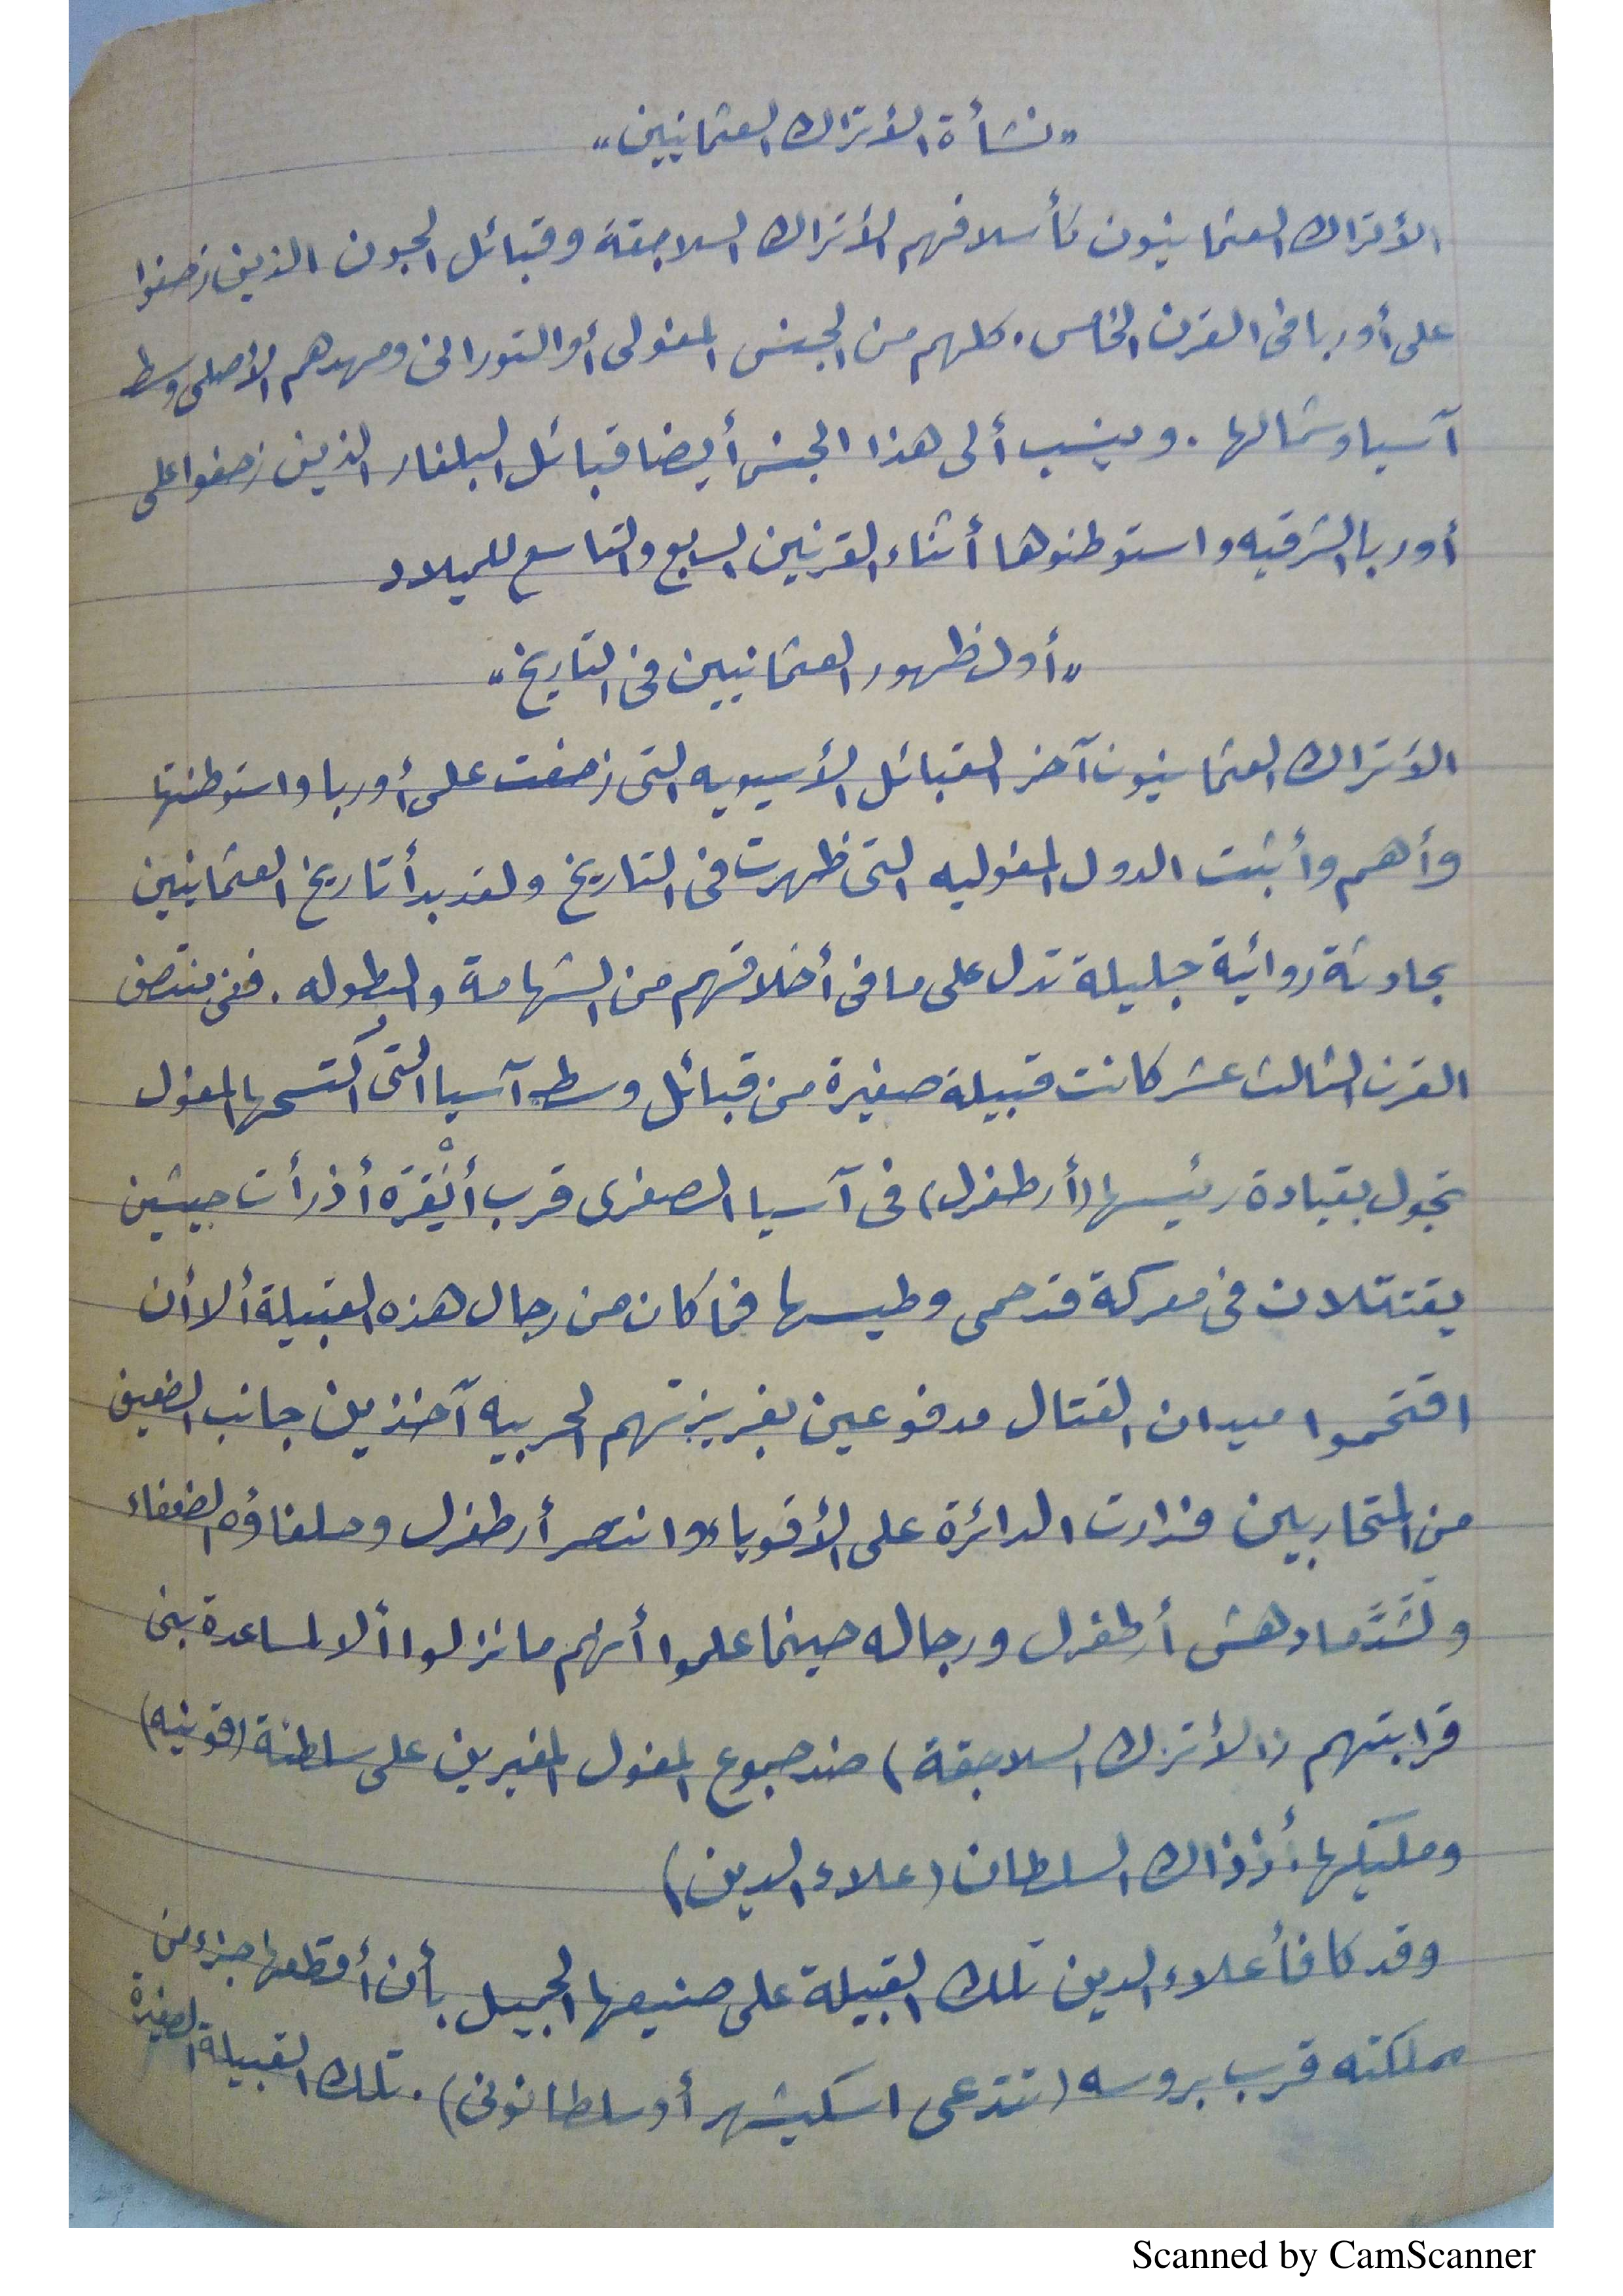 „نشأة الأتراك العثمانيين„
الأتراك العثمانيون كأسلافهم الأتراك السلاجقة وقبائل الهون الذين زحفوا
على أوربا فى القرن الخامس. كلهم من الجنس المغولى أو التورانى ومهدهم الأصلى وسط
آسيا وشمالها. وينسب ألى هذا الجنس أيضا قبائل البلغار الذين زحفوا على
أوربا الشرقيه واستوطنوها أثناء القرنين السابع والتاسع للميلاد
„أول ظهور العثمانيين فى التاريخ„
الأتراك العثمانيون آخر القبائل الأسيويه التى زحفت على أوربا واستوطنتها
وأهم وأثبت الدول المغوليه التى ظهرت فى التاريخ ولقد بدأ تاريخ العثمانيين
بحادثة روائية جليلة تدل على ما فى أخلاقهم من الشهامة والبطوله. ففى منتصف
القرن الثالث عشر كانت قبيلة صغيرة من قبائل وسط آسيا التى أكتسحها المغول
تجول بقيادة رئيسها (أرطغرل) فى آسيا الصغرى قرب أنْقَرَه أذ رأت جيشين
يقتتلان فى معركة قد حمى وطيسها فما كان من رجال هذه القبيلة ألا أن
اقتحموا ميدان القتال مدفوعين بغريزتهم الحربيه آخذين جانب الضعيف
من المتحاربين فدارت الدائرة على الأقوياء وانتصر أرطغرل وحلفاؤه الضعفاء
ولَشَدَّما دهش أرطغرل ورجاله حينما علموا أنهم ما نزلوا ألا لمساعدة بنى
قرابتهم (الأتراك السلاجقة) ضد جموع المغول المغيرين على سلطنة (قونيه)
ومليكها أذ ذاك السلطان (علاء الدين)
وقد كافأ علاء الدين تلك القبيلة على صنيعها الجميل بأن أقطعها جزء من
مملكته قرب بروسه (تدعى اسكيشهر أو سلطانونى). تلك القبيلة الصغيرة
Scanned by CamScanner